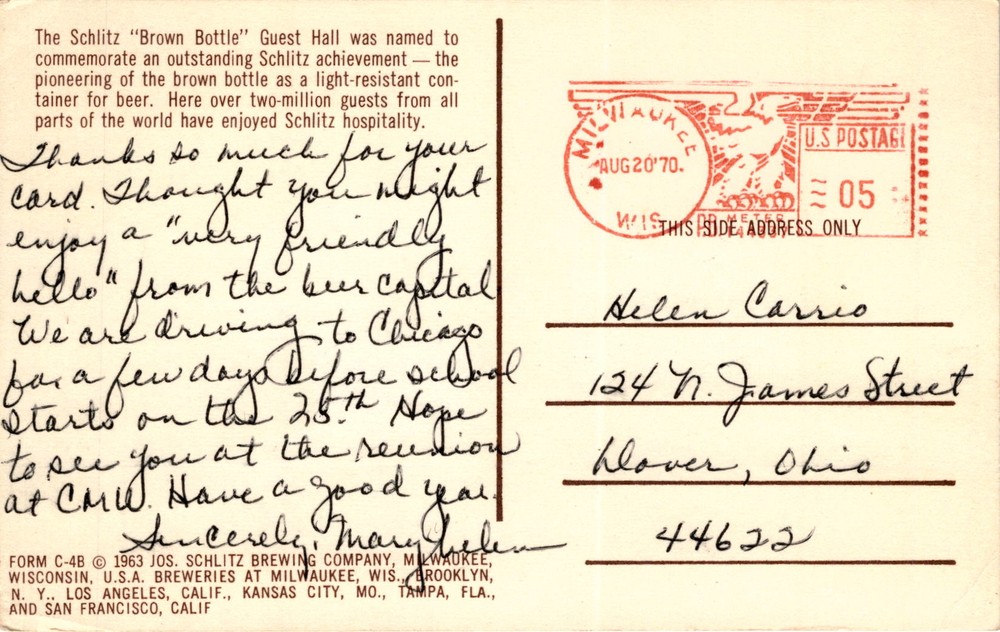 The Schlitz "Brown Bottle" Guest Hall was named to
commemorate an outstanding Schlitz achievement — the
pioneering of the brown bottle as a light-resistant con-
tainer for beer. Here over two-million guests from all
parts of the world have enjoyed Schlitz hospitality.
Thanks so much for your
card. Thought you might
enjoy a "very friendly
hello" from the beer capital
We are driving to Chicago
for a few days before school
starts on the 25th Hope
to see you at the reunion
at CMU. Have a good year.
Sincerely, Mary Helen
FORM C-4B © 1963 JOS. SCHLITZ BREWING COMPANY, MILWAUKEE,
WISCONSIN, U.S.A. BREWERIES AT MILWAUKEE, WIS., BROOKLYN,
N. Y., LOS ANGELES, CALIF., KANSAS CITY, MO., TAMPA, FLA.,
AND SAN FRANCISCO, CALIF
MILWAUKEE
AUG 20 '70.
WIS
U.S POSTAGE
05
METER
THIS SIDE ADDRESS ONLY
Helen Carrio
124 N. James Street
Dover, Ohio
44622